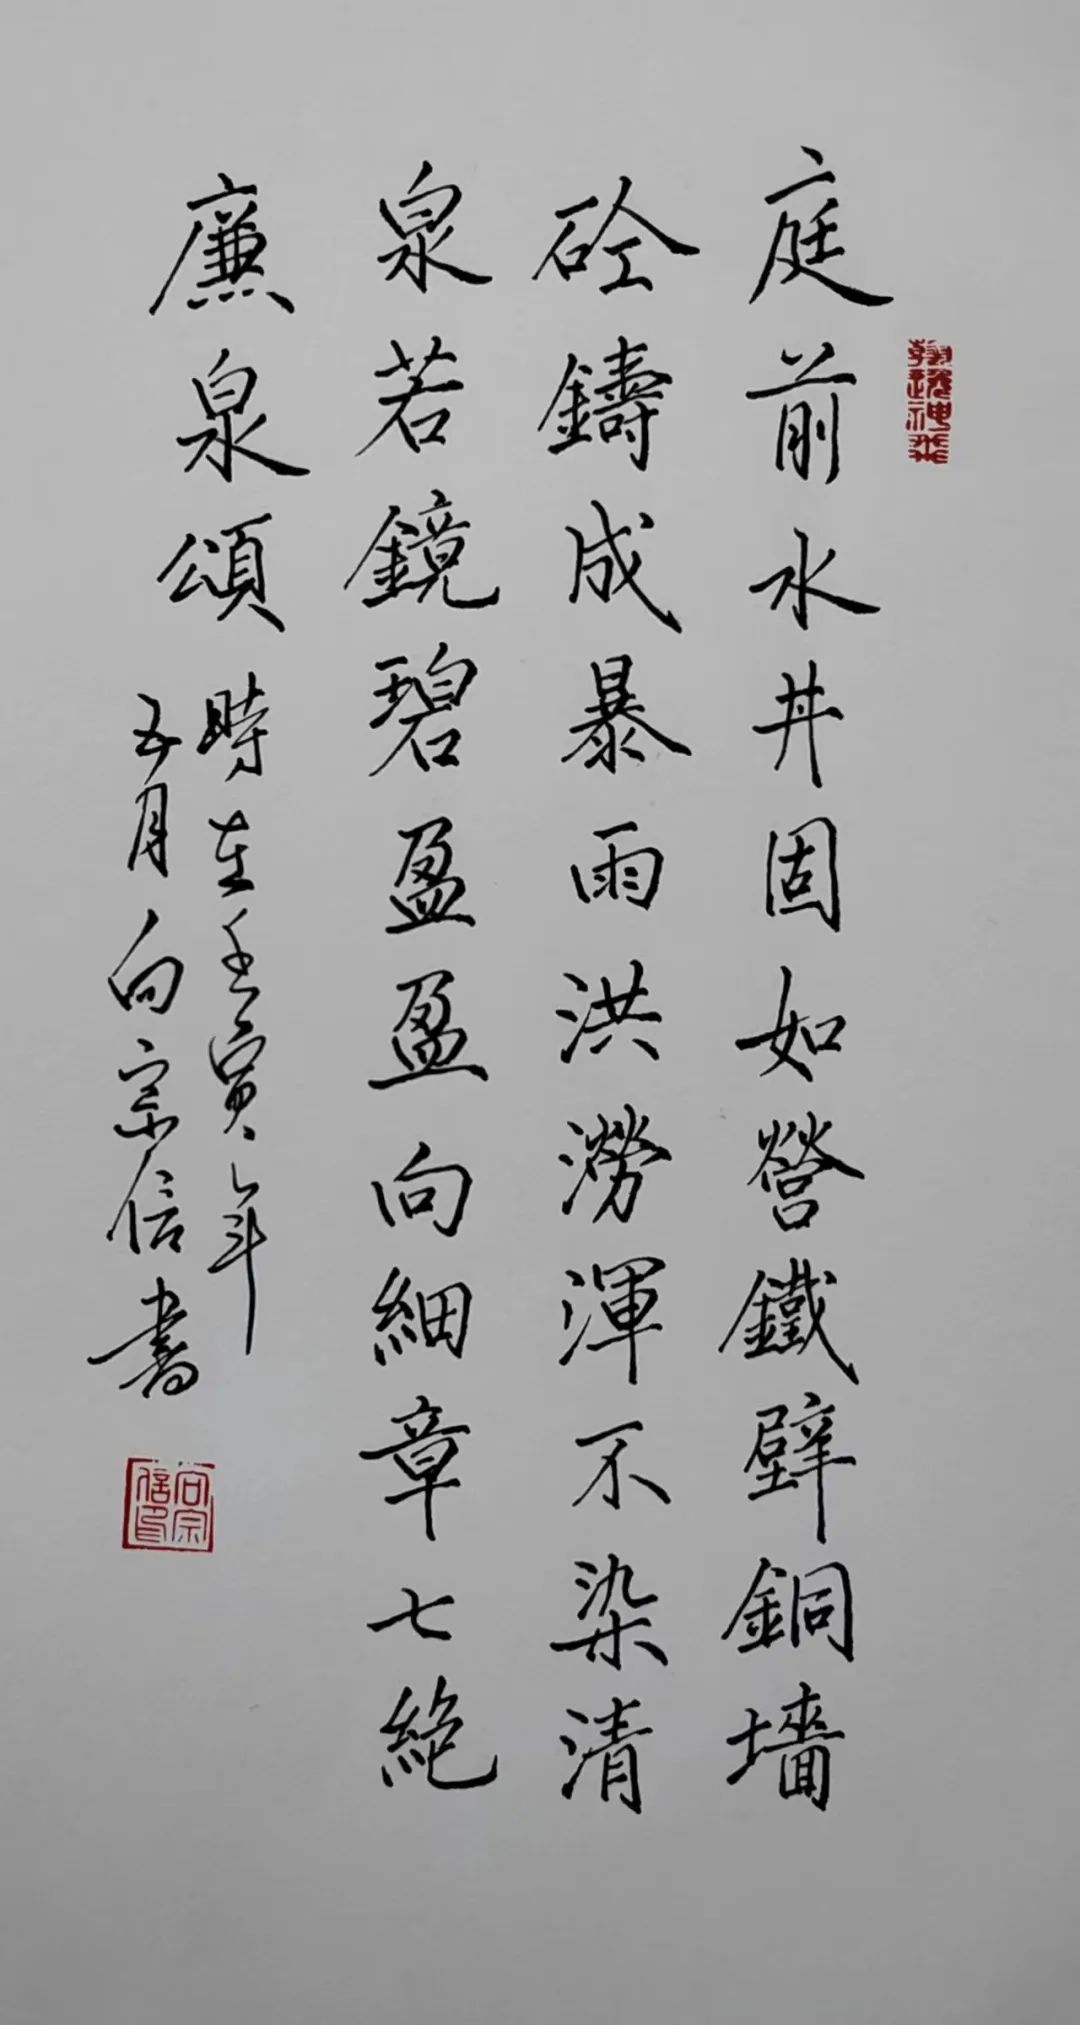 翰逸神飛
庭前水井固如營鐵壁銅墻
砼鑄成暴雨洪澇渾不染清
泉若鏡碧盈盈向細章七絕
廉泉頌
時在壬寅年
五月向宗信書
向宗信印